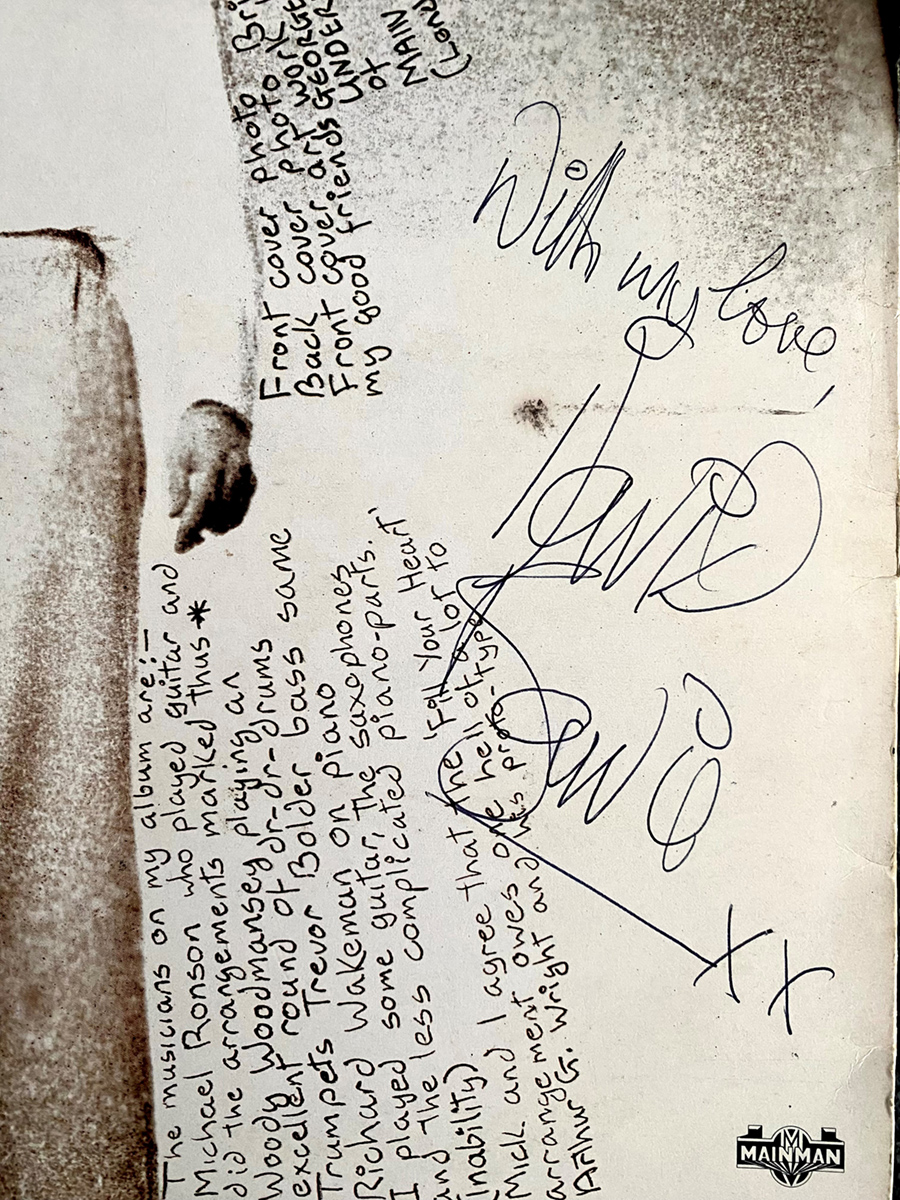 The musicians on my album are:-
Michael Ronson who played guitar and
did the arrangements marked thus *
Woody Woodmansey playing an
excellent round of dr-dr-drums
Trumpets Trevor Bolder bass same
Richard Wakeman on piano
I played some guitar, the saxophones
and the less complicated piano-parts.
(inability)
Mick and I agree that the 'Fill Your Heart'
arrangement owes one hell of a lot to
Arthur G. Wright and his proto-type
Front cover photo
Back cover photo
Front cover art work
my good friends GEORGE
UNDER
of
MAIN
With my love,
David
Bowie
XX
MAINMAN